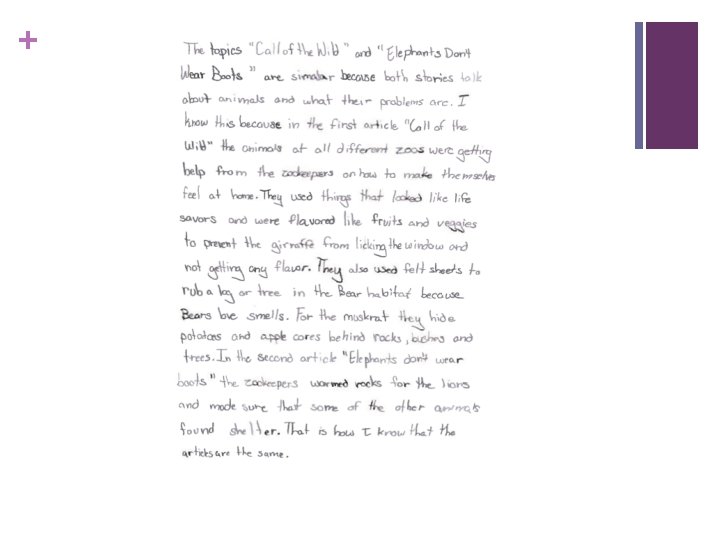 The topics "Call of the Wild" and "Elephants Don't
Wear Boots" are simalar because both stories talk
about animals and what their problems are. I
know this because in the first article "Call of the
Wild" the animals at all different zoos were getting
help from the zookeepers on how to make themselves
feel at home. They used things that looked like life
savors and were flavored like fruits and veggies
to prevent the girraffe from licking the window and
not getting any flavor. They also used felt sheets to
rub a log or tree in the Bear habitat because
Bears love smells. For the muskrat they hide
potatoes and apple cores behind rocks, bushes and
trees. In the second article "Elephants don't wear
boots" the zookeepers warmed rocks for the lions
and made sure that some of the other animals
found shelter. That is how I know that the
articles are the same.